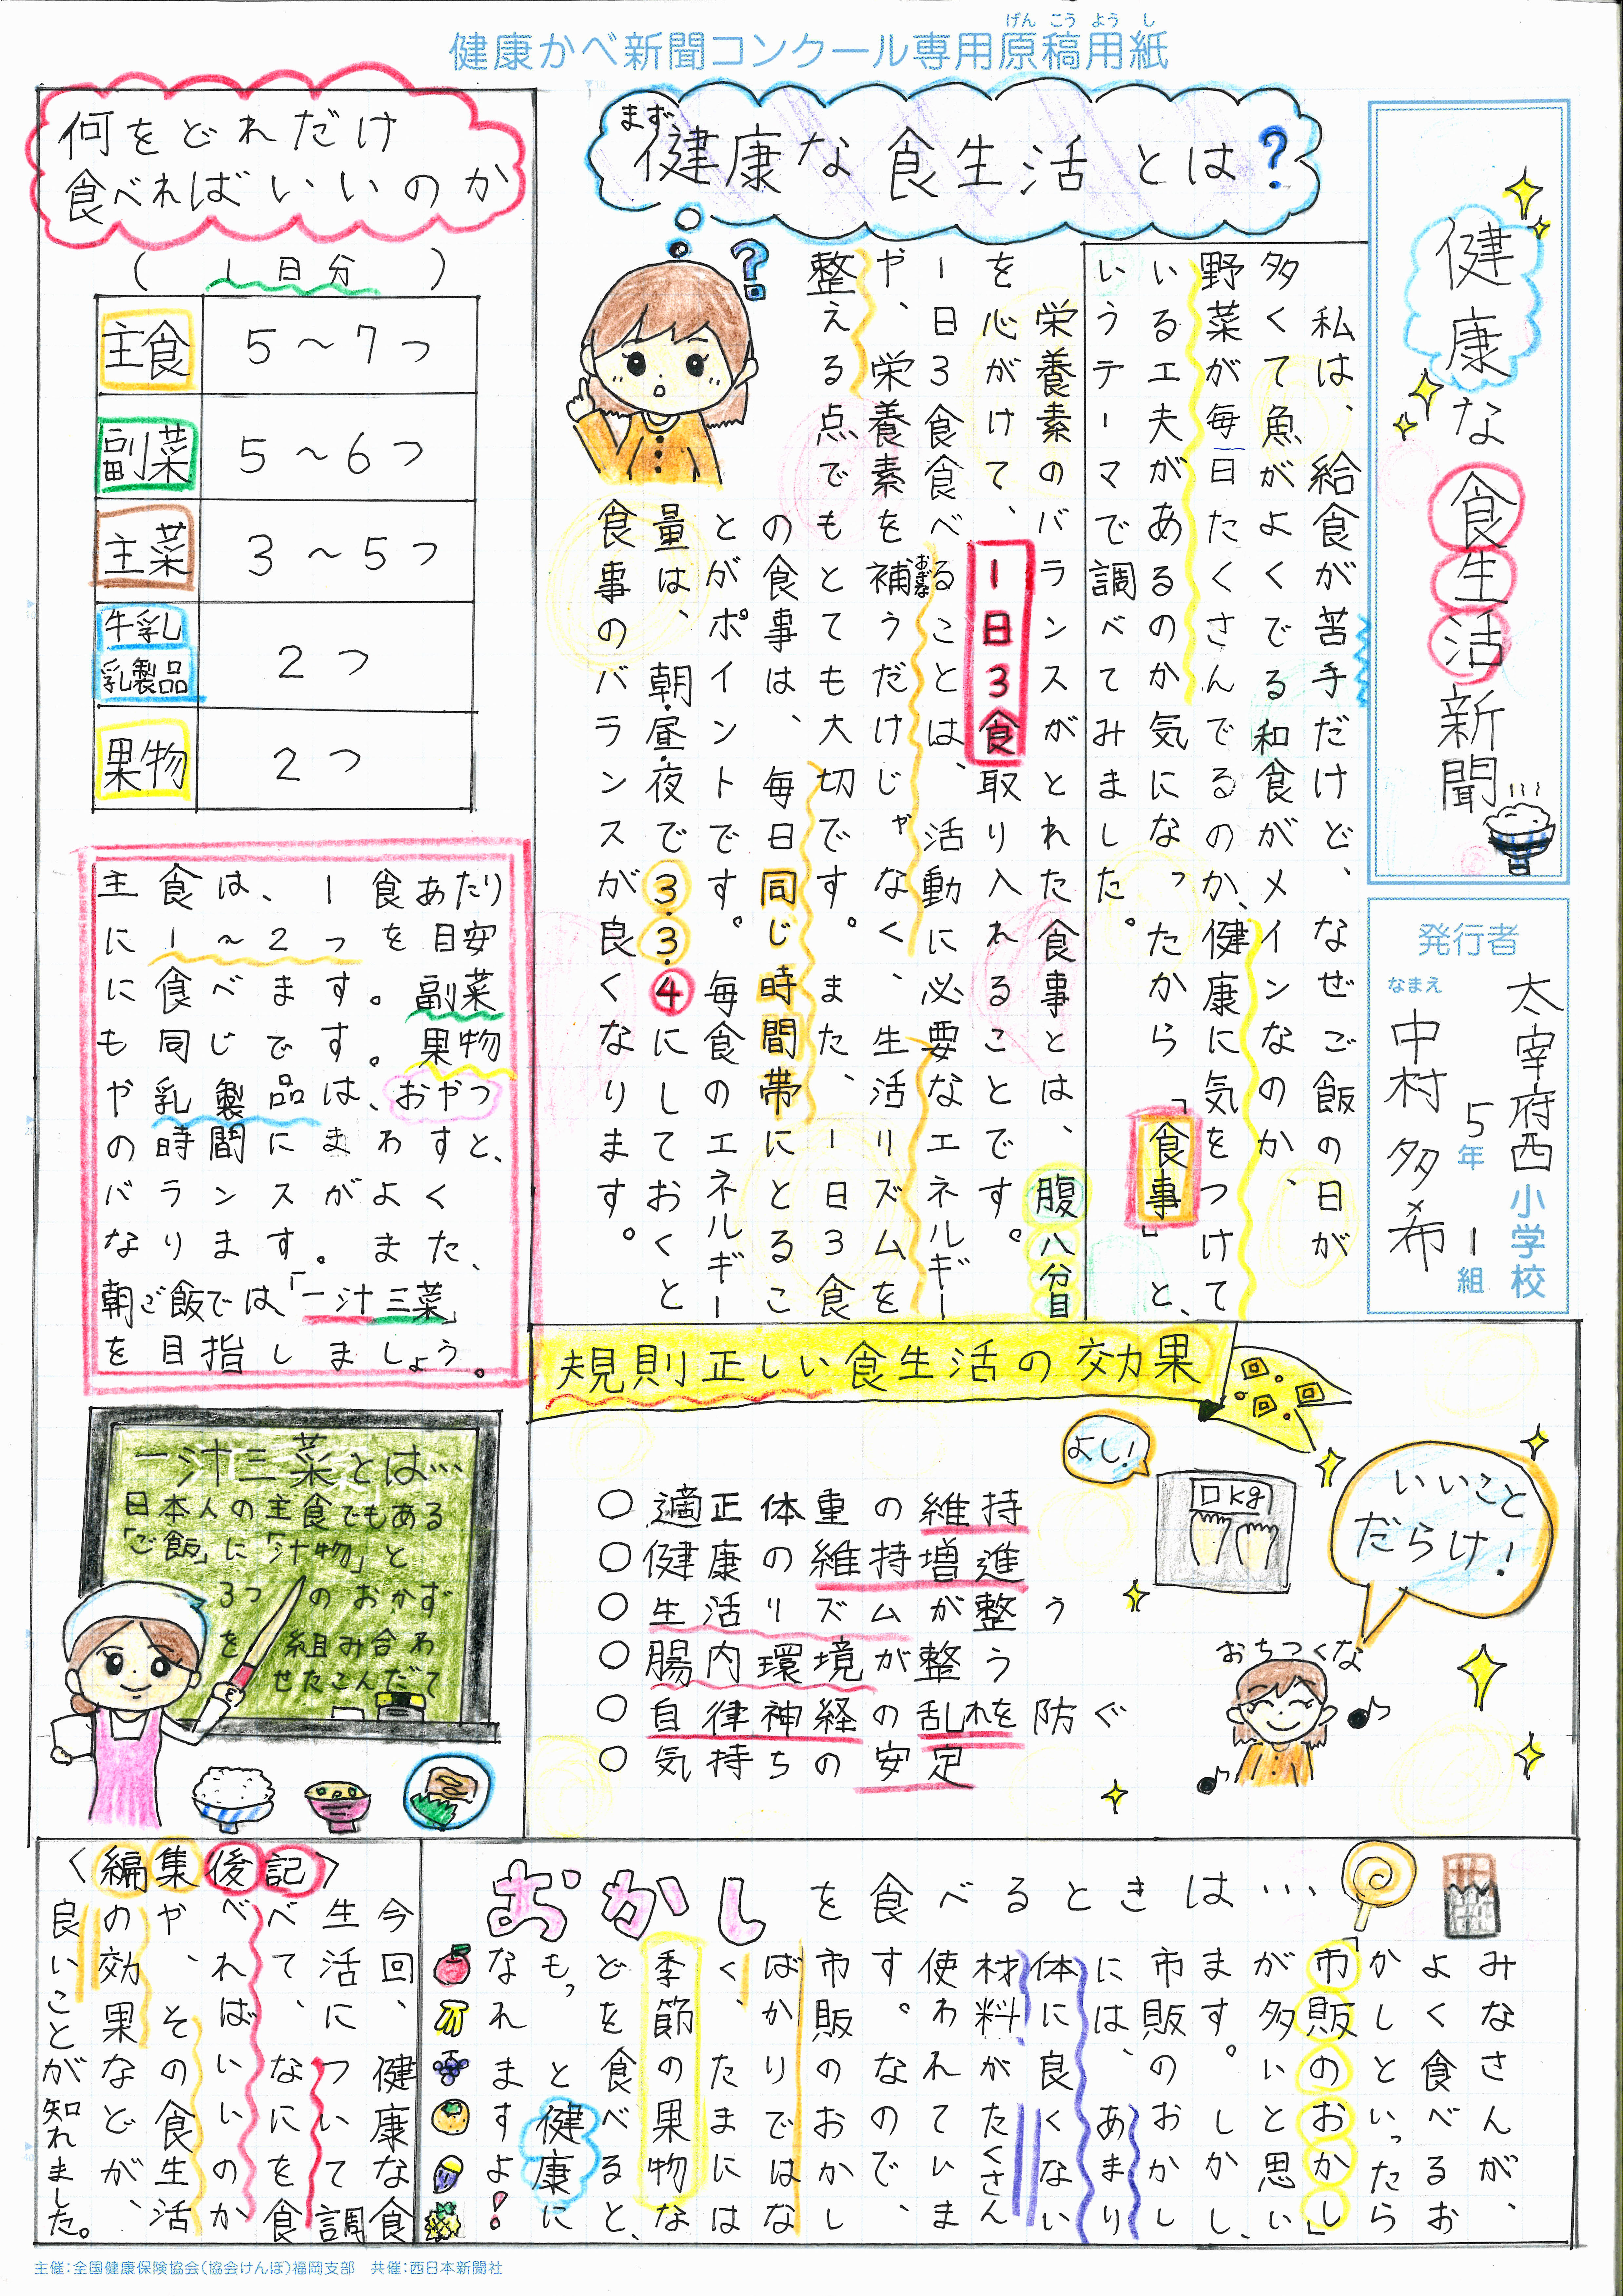 健康かべ新聞コンクール専用原稿用紙
げんこうようし
健康な食生活新聞
発行者
太宰府西小学校
5年1組
なまえ
中村多希
まず
健康な食生活とは?
私は、給食が苦手だけど、なぜご飯の日が
多くて魚がよくでる和食がメインなのか、
野菜が毎日たくさんでるのか、健康に気をつけて
いる工夫があるのか気になったから「食事」と、
いうテーマで調べてみました。
栄養素のバランスがとれた食事とは、腹八分目
を心がけて、1日3食取り入れることです。
1日3食食べることは、活動に必要なエネルギー
や、栄養素を補うだけじゃなく、生活リズムを
おぎな
整える点でもとても大切です。また、1日3食
の食事は、毎日同じ時間帯にとるこ
とがポイントです。毎食のエネルギー
量は、朝・昼・夜で3・3・4にしておくと
食事のバランスが良くなります。
何をどれだけ
食べればいいのか
(1日分)
主食 5〜7つ
副菜 5〜6つ
主菜 3〜5つ
牛乳
乳製品 2つ
果物 2つ
主食は、1食あたり
に1〜2つを目安
に食べます。副菜
も同じです。果物
や乳製品は、おやつ
の時間にまわすと、
バランスがよく
なります。また、
朝ご飯では、「一汁三菜」
を目指しましょう。
一汁三菜とは…
日本人の主食でもある
「ご飯」に「汁物」と
3つのおかず
を組み合わ
せたこんだて
規則正しい食生活の効果
○適正体重の維持
○健康の維持増進
○生活リズムが整う
○腸内環境が整う
○自律神経の乱れを防ぐ
○気持ちの安定
よし!
□kg
いいこと
だらけ!
おちつくな
おかしを食べるときは…
みなさんが、
よく食べるお
かしといったら
「市販のおかし」
が多いと思い
ます。しかし、
市販のおかし
には、あまり
体に良くない
材料がたくさん
使われていま
す。なので、
市販のおかし
ばかりではな
く、たまには
季節の果物な
どを食べると、
もっと健康に
なれますよ!
〈編集後記〉
今回、健康な食
生活について調
べて、なにを食
べればいいのか
や、その食生活
の効果などが、
良いことが知れました。
主催:全国健康保険協会(協会けんぽ)福岡支部 共催:西日本新聞社